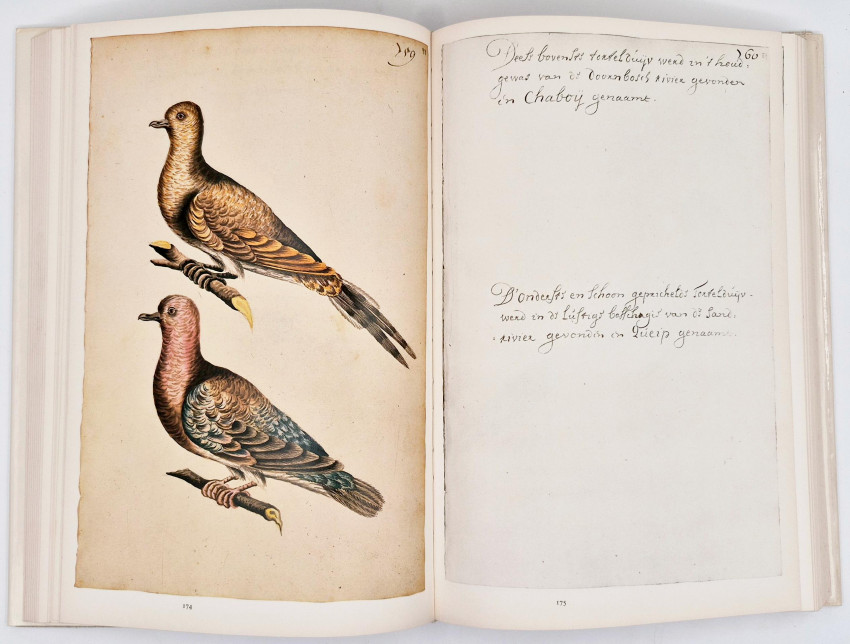 759
174
760
Deese bovenste terkelduijv werd in't houd,
gewas van de Doornbosch rivier gevonden
en Chaboij genaamt.
D'onderste en schoon gepeickelde Terkelduijv
werd in de lustige bosschagie van de Sand,
rivier gevonden en Queip genaamt.
175